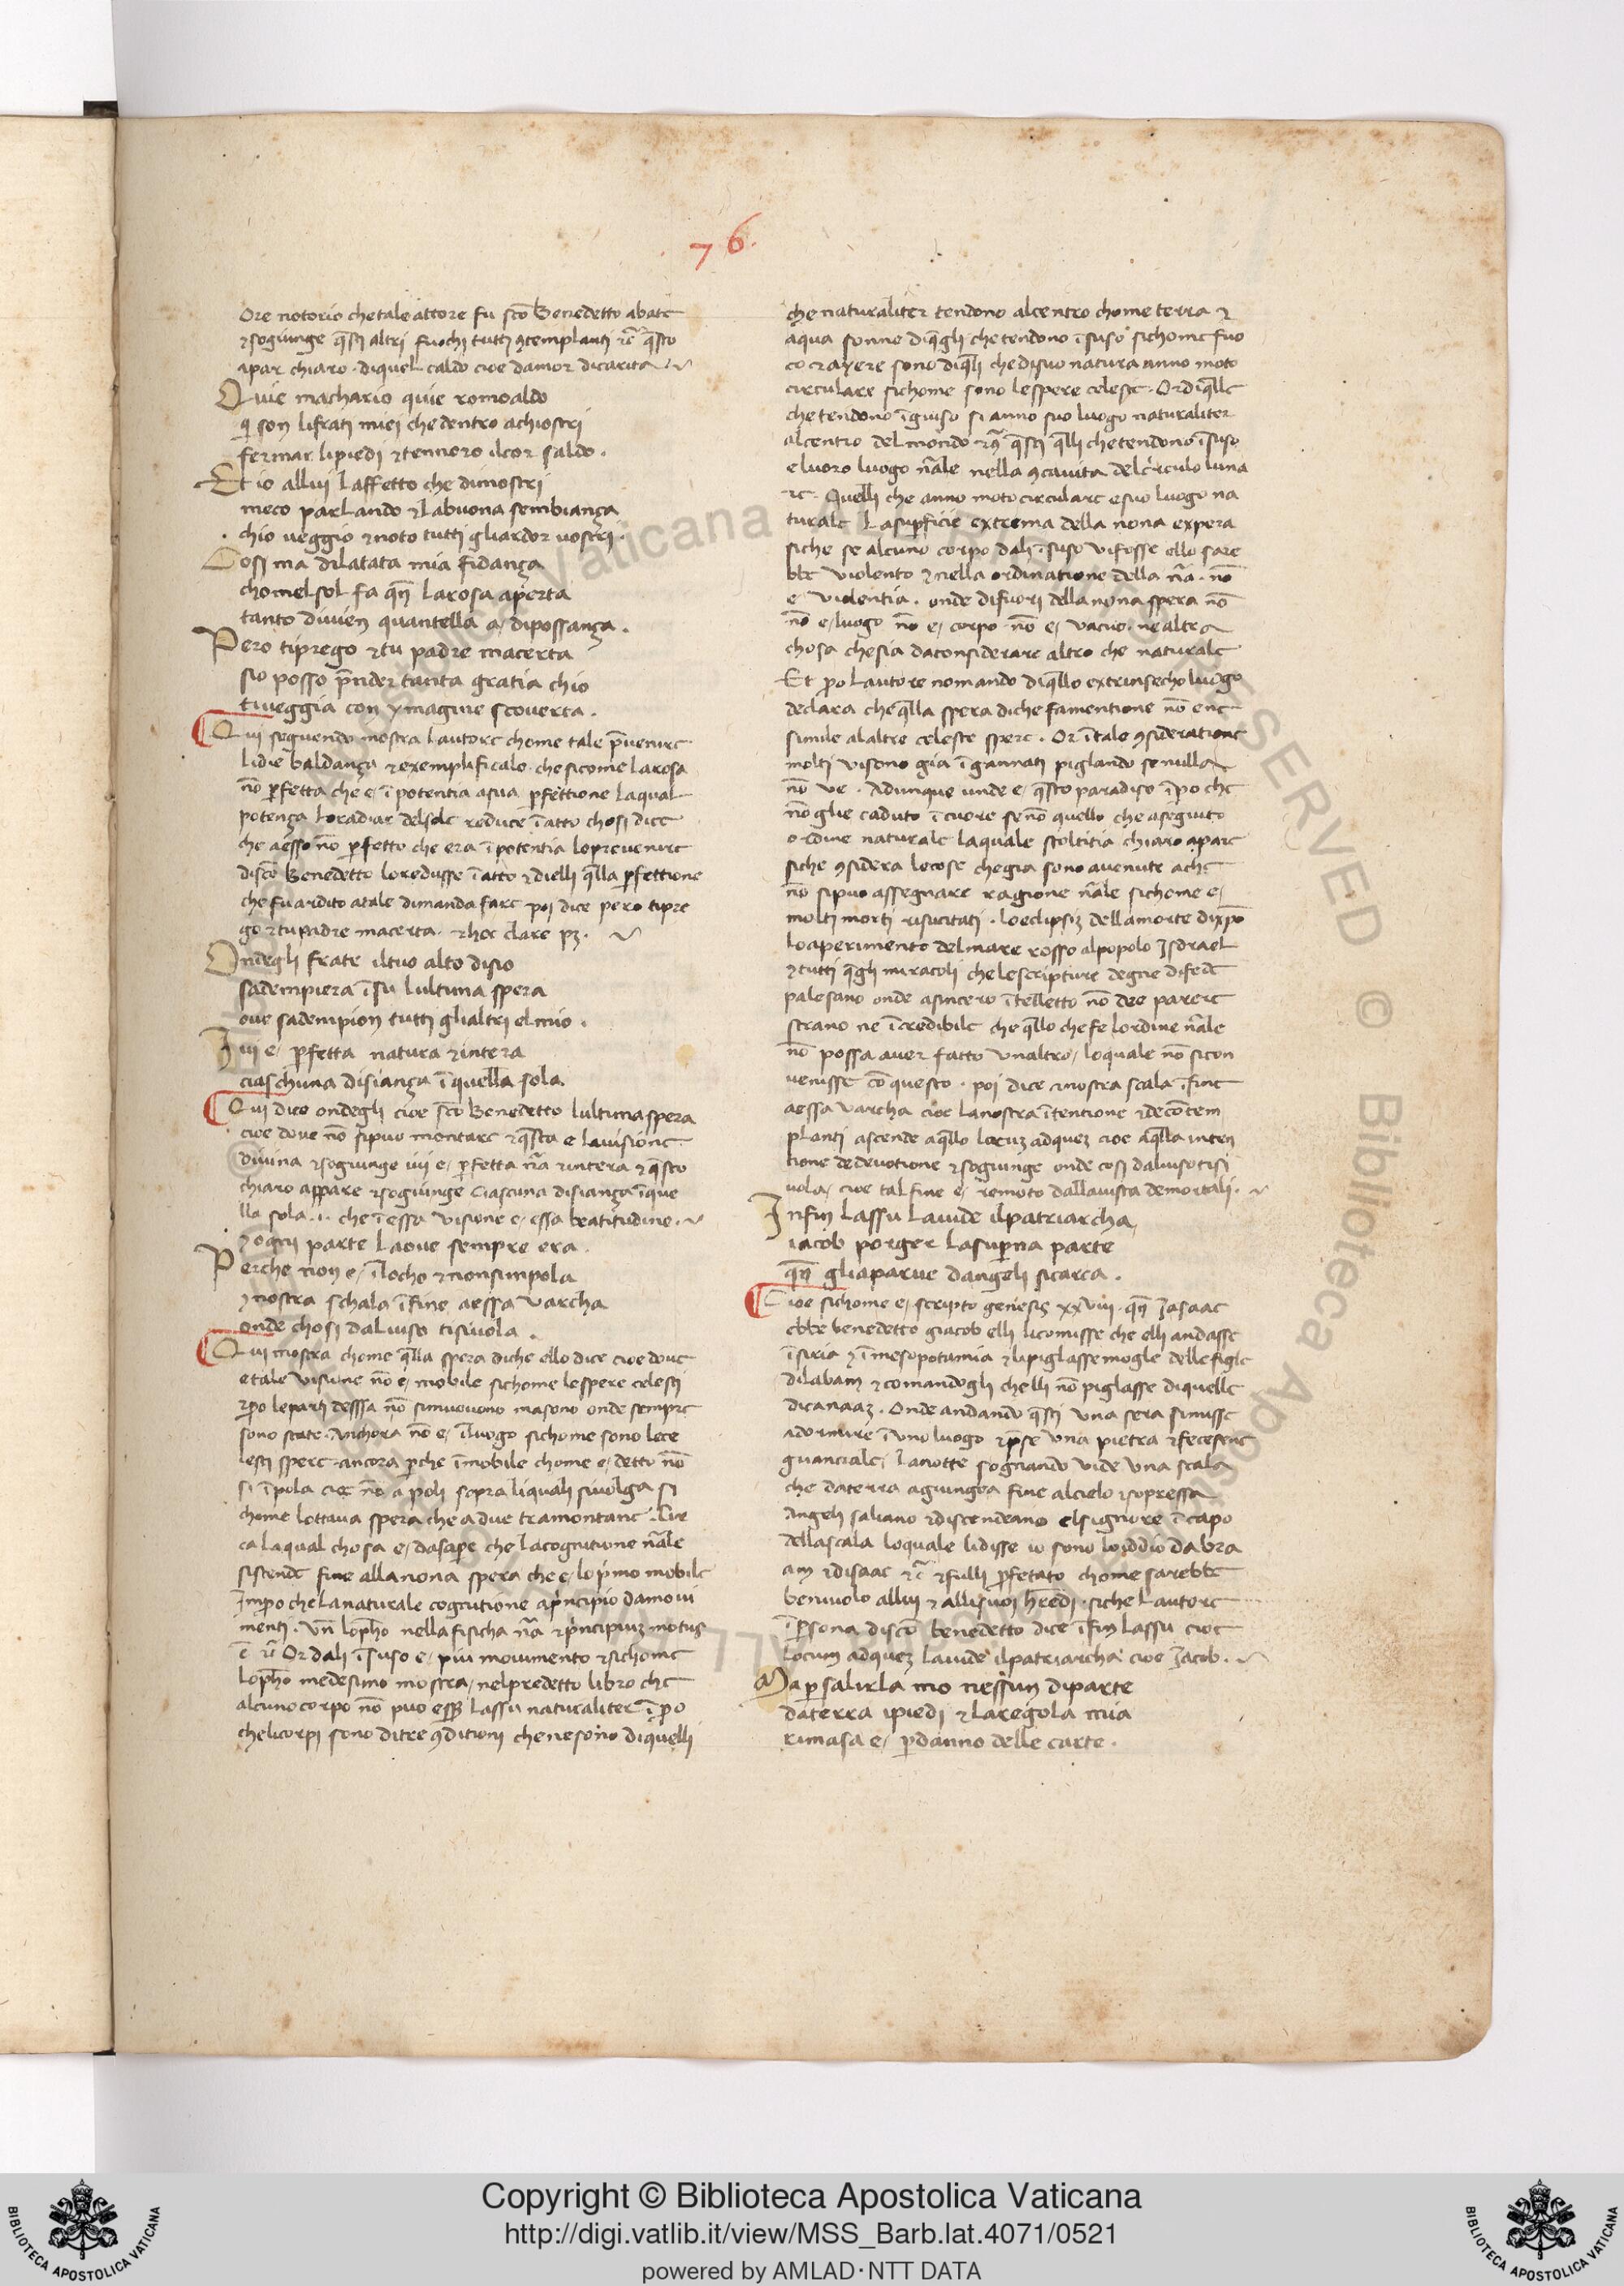 76.
Ore notorio che tale attore fu sc̄o Benedetto abate
⁊ sogiunge q̄sti altri fuochi tutti ꝯtemplanti ⁊c̄ q̄sto
apar chiaro · di quel caldo cioe damor di carita
Quie machario quie romoaldo
q̄ son li frati miei che dentro achiostri
fermar li piedi ⁊ tennero il cor saldo .
Et io allui laffetto che dimostri
meco parlando ⁊ la buona sembiança
chio veggio ⁊ noto tutti gliardor vostri .
Cosi ma dilatata mia fidança
chomel sol fa qn̄ la rosa aperta
tanto divien quantella a / di possança .
Pero ti prego ⁊ tu padre macerta
sio posso p̄nder tanta gratia chio
ti veggia con ymagine scoverta .
Qui seguendo mostra lautore chome tale p̄venire
li die baldança ⁊ exemplificalo · che si come la rosa
nō ꝑfetta che e / ī potentia a sua ꝑfettione la qual
potença lo radiar del sole reduce ī atto chosi dice
che aesso nō ꝑfetto che era ī potentia lo prevenire
di sc̄o Benedetto lo redusse ī atto ⁊ dielli q̄lla ꝑfettione
che fu ardito a tale dimanda fare poi dice pero ti pre
go ⁊ tu padre macerta · ⁊ hoc clare pꝫ .
Ondegli frate il tuo alto disio
sadempiera ī su lultima spera
ove sadempion tutti glialtri el mio .
Ivi e / ꝑfetta natura ⁊ intera
ciaschuna disiança ī quella sola
Qui dice ondegli cioe sc̄o Benedetto lultima spera
cioe dove nō si puo montare ⁊ q̄sta e la visione
divina ⁊ sogiunge ivi e / ꝑfetta nr̄a ⁊ intera ⁊ q̄sto
chiaro appare ⁊ sogiunge Ciascuna disiança ī que
lla sola .i. che ī essa visione e / essa beatitudine .
⁊ ogni parte la ove sempre era .
Perche non e / ī locho ⁊ non simpola
⁊ nostra schala ī fine aessa varcha
onde chosi dal viso ti si vola .
Qui mostra chome q̄lla spera di che ello dice cioe dove
e tale visione nō e / mobile sichome le spere celesti
⁊ ꝑo le parti dessa nō si muovono ma sono onde sempre
sono state . Anchora nō e / ī luogo sichome sono le ce
lesti spere ancora ꝑche īmobile chome e / detto nō
si īpola cioe nō a poli sopra li quali si volga si
chome lottava spera che a due tramontane . Cir
ca la qual chosa e / da sape che la cognitione nr̄ale
si stende fine alla nona spera che e / lo p̄mo mobile
Īmꝑo che la naturale cognitione a p̄ncipio da movi
menti . Vn̄ lo ph̄o nella fisicha nr̄a ⁊ p̄ncipiuꝫ motus
ē ⁊c̄ Or dali ī suso e / piu movimento ⁊ sichome
lo ph̄o medesimo mostra / nel predetto libro che
alcuno corpo nō puo ess̄e lassu naturaliter ī ꝑo
che li corpi sono di tre ꝯditioni che ne sono di quelli
che naturaliter tendono al centro chome terra ⁊
aqua sonne di q̄gli che tendono ī suso sichome fuo
co ⁊ ayere sono di q̄li che di suo natura anno moto
circulare sichome sono le spere celeste . Or di q̄lle
che tendono ī guiso si anno suo luogo naturaliter
al centro del mondo ⁊ q̄sti q̄lli che tendono ī suso
e luoro luogo nr̄ale nella ꝯcavita del circulo luna
⁊c̄ . Quelli che anno moto circulare e suo luogo na
turale la suꝑficie extrema della nona expera
siche se alcuno corpo dali ī suso vi fosse ello sare
bbe violento ⁊ nella ordinatione della nr̄a · nō
e violentia . onde di fuori della nona spera nō
nō e / luogo nō e / corpo nō e / vacuo . ne altra
chosa che sia da considerare altro che naturale
Et ꝑo lautore nomando di q̄llo extrinsecho luogo
declara che q̄lla spera di che fa mentione nō ene
simile al altre celeste spere . Or ī tale ꝯsideratione
molti vi sono gia īgannati pigliando se nulla
nō ve . Adunque unde e / q̄sto paradiso ī ꝑo che
nō glie caduto ī cuore se nō quello che a seguito
ordine naturale la quale stoltitia chiaro apare
siche ꝯsidera le cose che gia sono avenute a che
nō si puo assegnare ragione nr̄ale sichome e /
molti morti risucitati . lo eclipsis della morte di xpō
lo aperimento del mare rosso al popolo Isdrael
⁊ tutti q̄gli miracoli che le scripture degne di fede
palesano onde a sincero ītelletto nō dee parere
strano ne īcredibile che q̄llo che fe lordine nr̄ale
nō possa aver fatto un altro / lo quale nō si con
venisse cō questo . poi dice ⁊ nostra scala ī fine
aessa varcha cioe la nostra ītentione ⁊ de cōtem
planti ascende a q̄llo locuꝫ ad queꝫ cioe a q̄lla inten
tione de devotione ⁊ sogiunge onde cosi dal viso ti si
vola / cioe tal fine e / remoto dalla vista de mortali .
Infin lassu la vide il patriarcha
iacob porger la suꝑna parte
qn̄ gli aparve dangeli si carca .
Cioe sichome e / scripto genesis xxviii . qn̄ Isaac
ebbe benedetto giacob elli li comisse che elli andasse
ī siria ⁊ ī mesopotamia ⁊ li pigliasse mogle delle figle
di labam ⁊ comandogli chelli nō piglasse di quelle
di canaaꝫ . Onde andando q̄sti una sera si misse
a dormire ī uno luogo ⁊ p̄se una pietra ⁊ fecesene
guanciale / la notte sognando vide una scala
che da terra agiungea fine al cielo ⁊ sopressa
Angeli saliano ⁊ discendeano el signore ī capo
della scala lo quale li disse io sono lo iddio dabra
am ⁊ disaac ⁊c̄ ⁊ fulli ꝑfetato chome sarebbe
benivolo allui ⁊ alli suoi hr̄edi . siche lautore
ī ꝑsona di sc̄o benedetto dice ī fin lassu cioe
locum ad queꝫ la vide il patriarcha cioe Iacob .
Ma ꝑ salirla mo nessun diparte
da terra i piedi ⁊ la regola mia
rimasa e / ꝑ danno delle carte .
Copyright © Biblioteca Apostolica Vaticana
http://digi.vatlib.it/view/MSS_Barb.lat.4071/0521
powered by AMLAD·NTT DATA
BIBLIOTECA APOSTOLICA VATICANA
BIBLIOTECA APOSTOLICA VATICANA